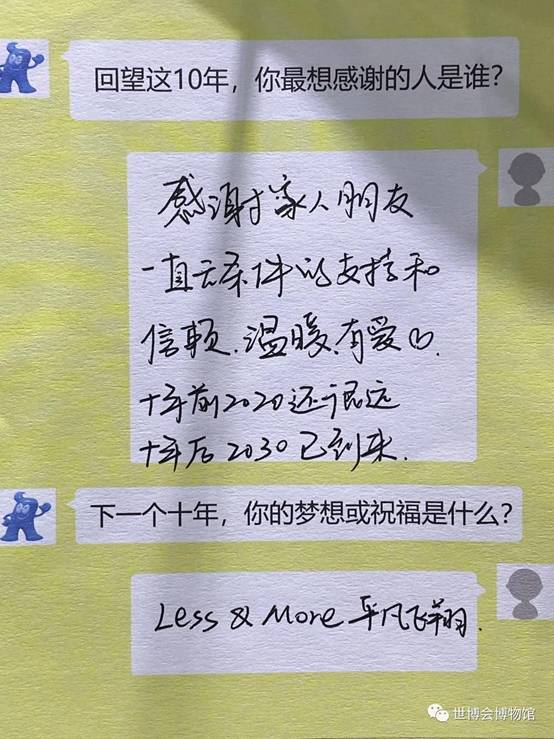 回望这10年，你最想感谢的人是谁？
感谢家人朋友
一直无条件的支持和
信赖.温暖.有爱♡.
十年前2020还很远
十年后2030已到来.
下一个十年，你的梦想或祝福是什么？
Less & More 平凡飞翔.
世博会博物馆